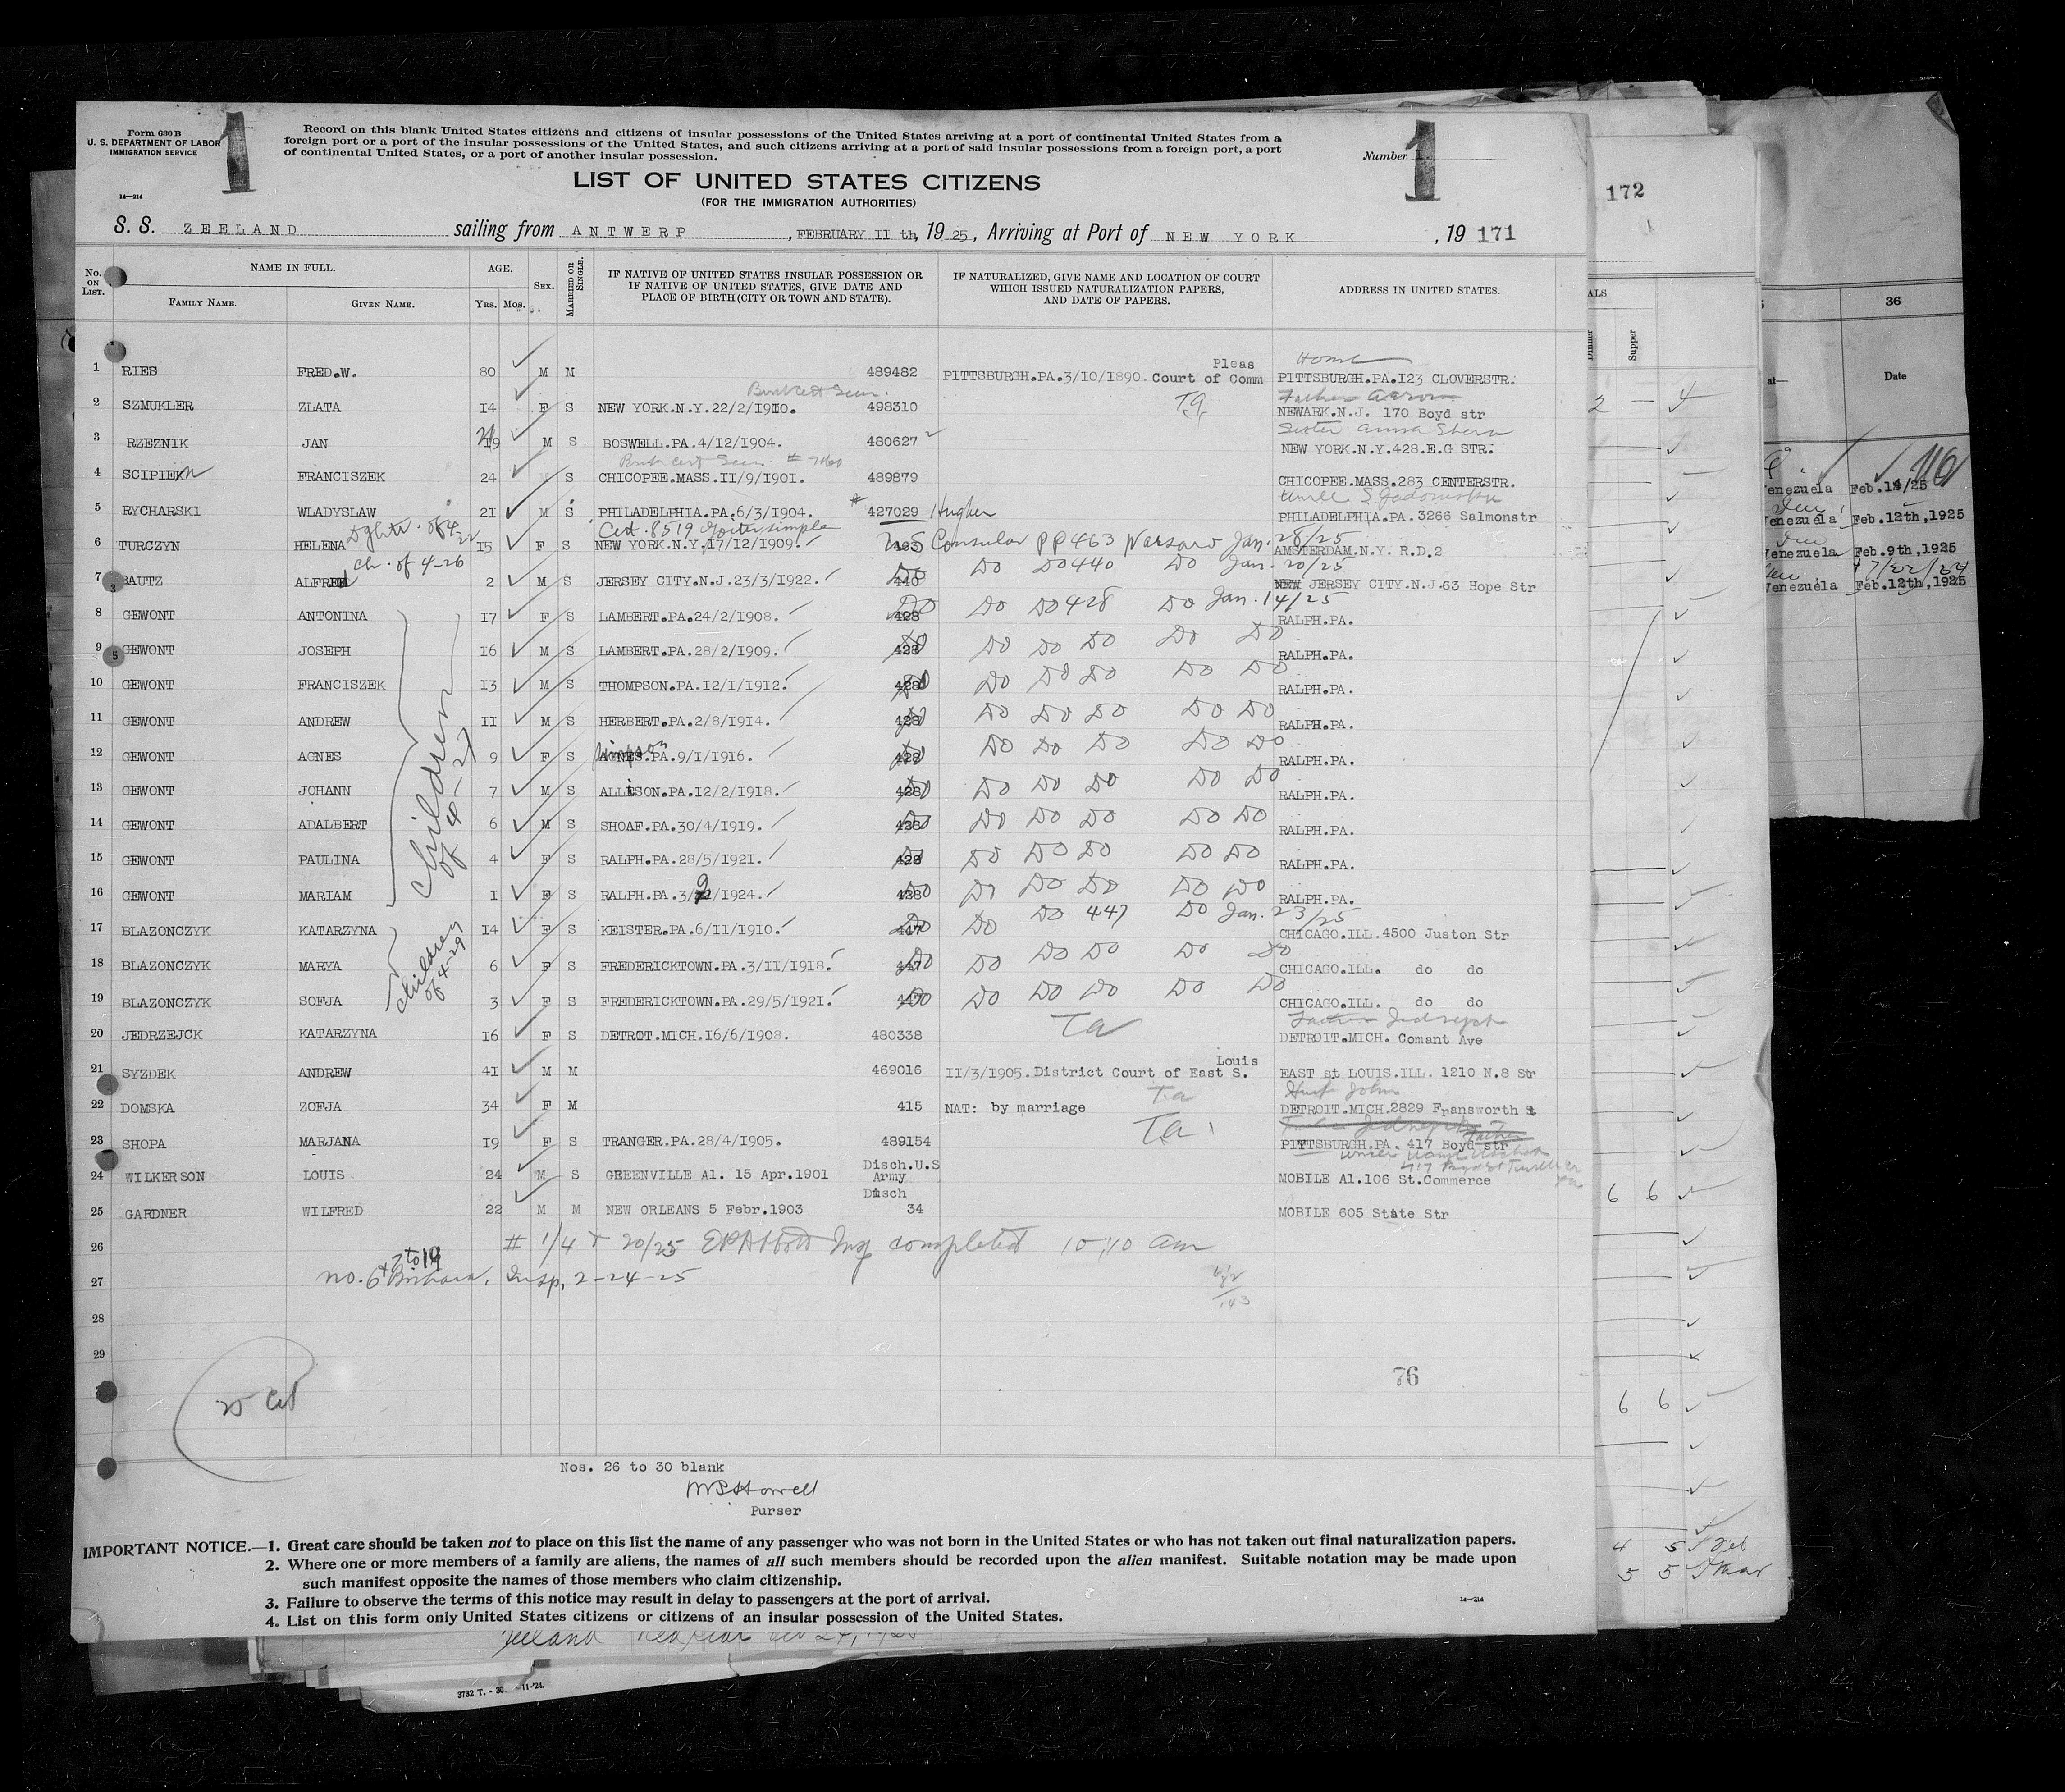 Form 630 B
U. S. DEPARTMENT OF LABOR
IMMIGRATION SERVICE
14—214
1
Record on this blank United States citizens and citizens of insular possessions of the United States arriving at a port of continental United States from a
foreign port or a port of the insular possessions of the United States, and such citizens arriving at a port of said insular possessions from a foreign port, a port
of continental United States, or a port of another insular possession.
Number 1
1
LIST OF UNITED STATES CITIZENS
(FOR THE IMMIGRATION AUTHORITIES)
S. S. ZEELAND sailing from ANTWERP, FEBRUARY II th, 19 25, Arriving at Port of NEW YORK, 19 171
No. ON LIST. NAME IN FULL. AGE. SEX. MARRIED OR SINGLE. IF NATIVE OF UNITED STATES INSULAR POSSESSION OR IF NATIVE OF UNITED STATES, GIVE DATE AND PLACE OF BIRTH (CITY OR TOWN AND STATE). IF NATURALIZED, GIVE NAME AND LOCATION OF COURT WHICH ISSUED NATURALIZATION PAPERS, AND DATE OF PAPERS. ADDRESS IN UNITED STATES.
FAMILY NAME. GIVEN NAME. YRS. MOS.
Pleas Home
1 RIES FRED.W. 80 M M 489482 PITTSBURGH.PA.3/10/1890.Court of Comm PITTSBURGH.PA.I23 CLOVERSTR.
2 SZMUKLER ZLATA I4 F S NEW YORK.N.Y.22/2/1910. 498310 NEWARK.N.J. 170 Boyd str
Sister Anna
3 RZEZNIK JAN 19 21 M S BOSWELL.PA.4/12/1904. 480627 NEW YORK.N.Y.428.E.G STR.
4 SCIPIEN FRANCISZEK 24 S CHICOPEE.MASS.II/9/1901. 489879 CHICOPEE.MASS.283 CENTERSTR.
5 RYCHARSKI WLADYSLAW 2I M S PHILADELPHIA.PA.6/3/1904. # 427029 Hughes PHILADELPHIA.PA.3266 Salmonstr
Dghtr. of 4-22 Cert. 8519 Goiter simple
6 TURCZYN HELENA I5 F S NEW YORK.N.Y.17/12/1909. 463 US Consular PP 463 Warsaw Jan. 28/25 AMSTERDAM.N.Y. R.D.2
ch. of 4-26
7 BAUTZ ALFRED 2 M S JERSEY CITY.N.J.23/3/1922. 440 Do Do Do 440 Do Jan. 20/25 NEW JERSEY CITY.N.J.63 Hope Str
8 GEWONT ANTONINA I7 F S LAMBERT.PA.24/2/1908. 428 Do Do Do 428 Do Jan. 14/25 RALPH.PA.
9 GEWONT JOSEPH I6 M S LAMBERT.PA.28/2/1909. 428 Do Do Do Do Do Do RALPH.PA.
10 GEWONT FRANCISZEK I3 M S THOMPSON.PA.I2/1/1912. 428 Do Do Do Do Do Do RALPH.PA.
11 GEWONT ANDREW II M S HERBERT.PA.2/8/1914. 428 Do Do Do Do Do Do RALPH.PA.
12 GEWONT AGNES 9 F S AGNES.PA.9/1/1916. 428 Do Do Do Do Do Do RALPH.PA.
13 GEWONT JOHANN 7 M S ALLISON.PA.I2/2/1918. 428 Do Do Do Do Do Do RALPH.PA.
14 GEWONT ADALBERT 6 M S SHOAF.PA.30/4/1919. 428 Do Do Do Do Do Do RALPH.PA.
15 GEWONT PAULINA 4 F S RALPH.PA.28/5/1921. 428 Do Do Do Do Do Do RALPH.PA.
16 GEWONT MARIAM I F S RALPH.PA.3/2/1924. 428 Do Do Do Do Do Do RALPH.PA.
children of 4-27
17 BLAZONCZYK KATARZYNA I4 F S KEISTER.PA.6/11/1910. 447 Do Do Do 447 Do Jan. 23/25 CHICAGO.ILL.4500 Juston Str
18 BLAZONCZYK MARYA 6 F S FREDERICKTOWN.PA.3/11/1918. 447 Do Do Do Do Do Do CHICAGO.ILL. do do
19 BLAZONCZYK SOFJA 3 F S FREDERICKTOWN.PA.29/5/1921. 447 Do Do Do Do Do Do CHICAGO.ILL. do do
children of 4-29
20 JEDRZEJCK KATARZYNA I6 F S DETROIT.MICH.I6/6/1908. 480338 Ta DETROIT.MICH. Comant Ave
Louis
21 SYZDEK ANDREW 4I M M 469016 II/3/1905.District Court of East S. EAST st LOUIS.ILL. 1210 N.8 Str
Ta John
22 DOMSKA ZOFJA 34 F M 415 NAT: by marriage DETROIT.MICH.2829 Fransworth St
Ta
23 SHOPA MARJANA I9 F S TRANGER.PA.28/4/1905. 489154 PITTSBURGH.PA. 417 Boyd str
Disch.U.S
24 WILKERSON LOUIS 24 M S GREENVILLE Al. 15 Apr.1901 Army MOBILE Al.106 St.Commerce
Disch
25 GARDNER WILFRED 22 M M NEW ORLEANS 5 Febr.1903 34 MOBILE 605 State Str
26 # 1/4 + 20/25 Insp completed 10:10 am
27 no. 6 + 7 to 19 Insp, 2-24-25
28
29
76
Nos. 26 to 30 blank
Purser
IMPORTANT NOTICE.—1. Great care should be taken not to place on this list the name of any passenger who was not born in the United States or who has not taken out final naturalization papers.
2. Where one or more members of a family are aliens, the names of all such members should be recorded upon the alien manifest. Suitable notation may be made upon
such manifest opposite the names of those members who claim citizenship.
3. Failure to observe the terms of this notice may result in delay to passengers at the port of arrival.
4. List on this form only United States citizens or citizens of an insular possession of the United States.
14—214
3732 T. - 30 11-'24.
172
Dinner Supper
2 — 4
6 6
6 6
4 5 Feb
5 5 Mar
36
Date
116
Venezuela Feb.14/25
Venezuela Feb.12th,1925
Venezuela Feb.9th,1925
Venezuela Feb.12th,1925